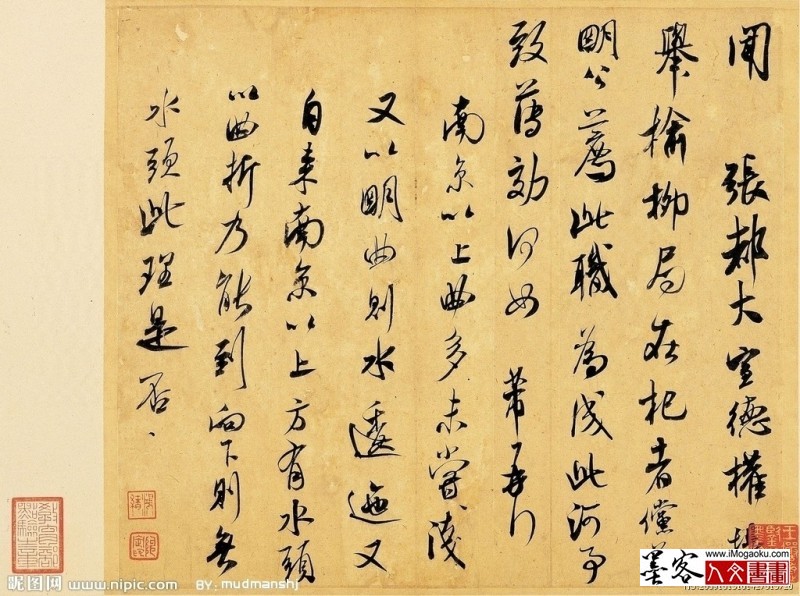 聞 張都大宣德權
舉榆柳局在杞者儻
明公薦此職為成此河事
致薄効何如 芾再
南京以上曲多未嘗淺
又以明曲則水逶迤又
自來南京以上方有水頭
以曲折乃能到向下則無
水頭此理是否
昵图网 www.nipic.com BY: mudmanshj
www.iMogaoku.com
墨客人文書畫